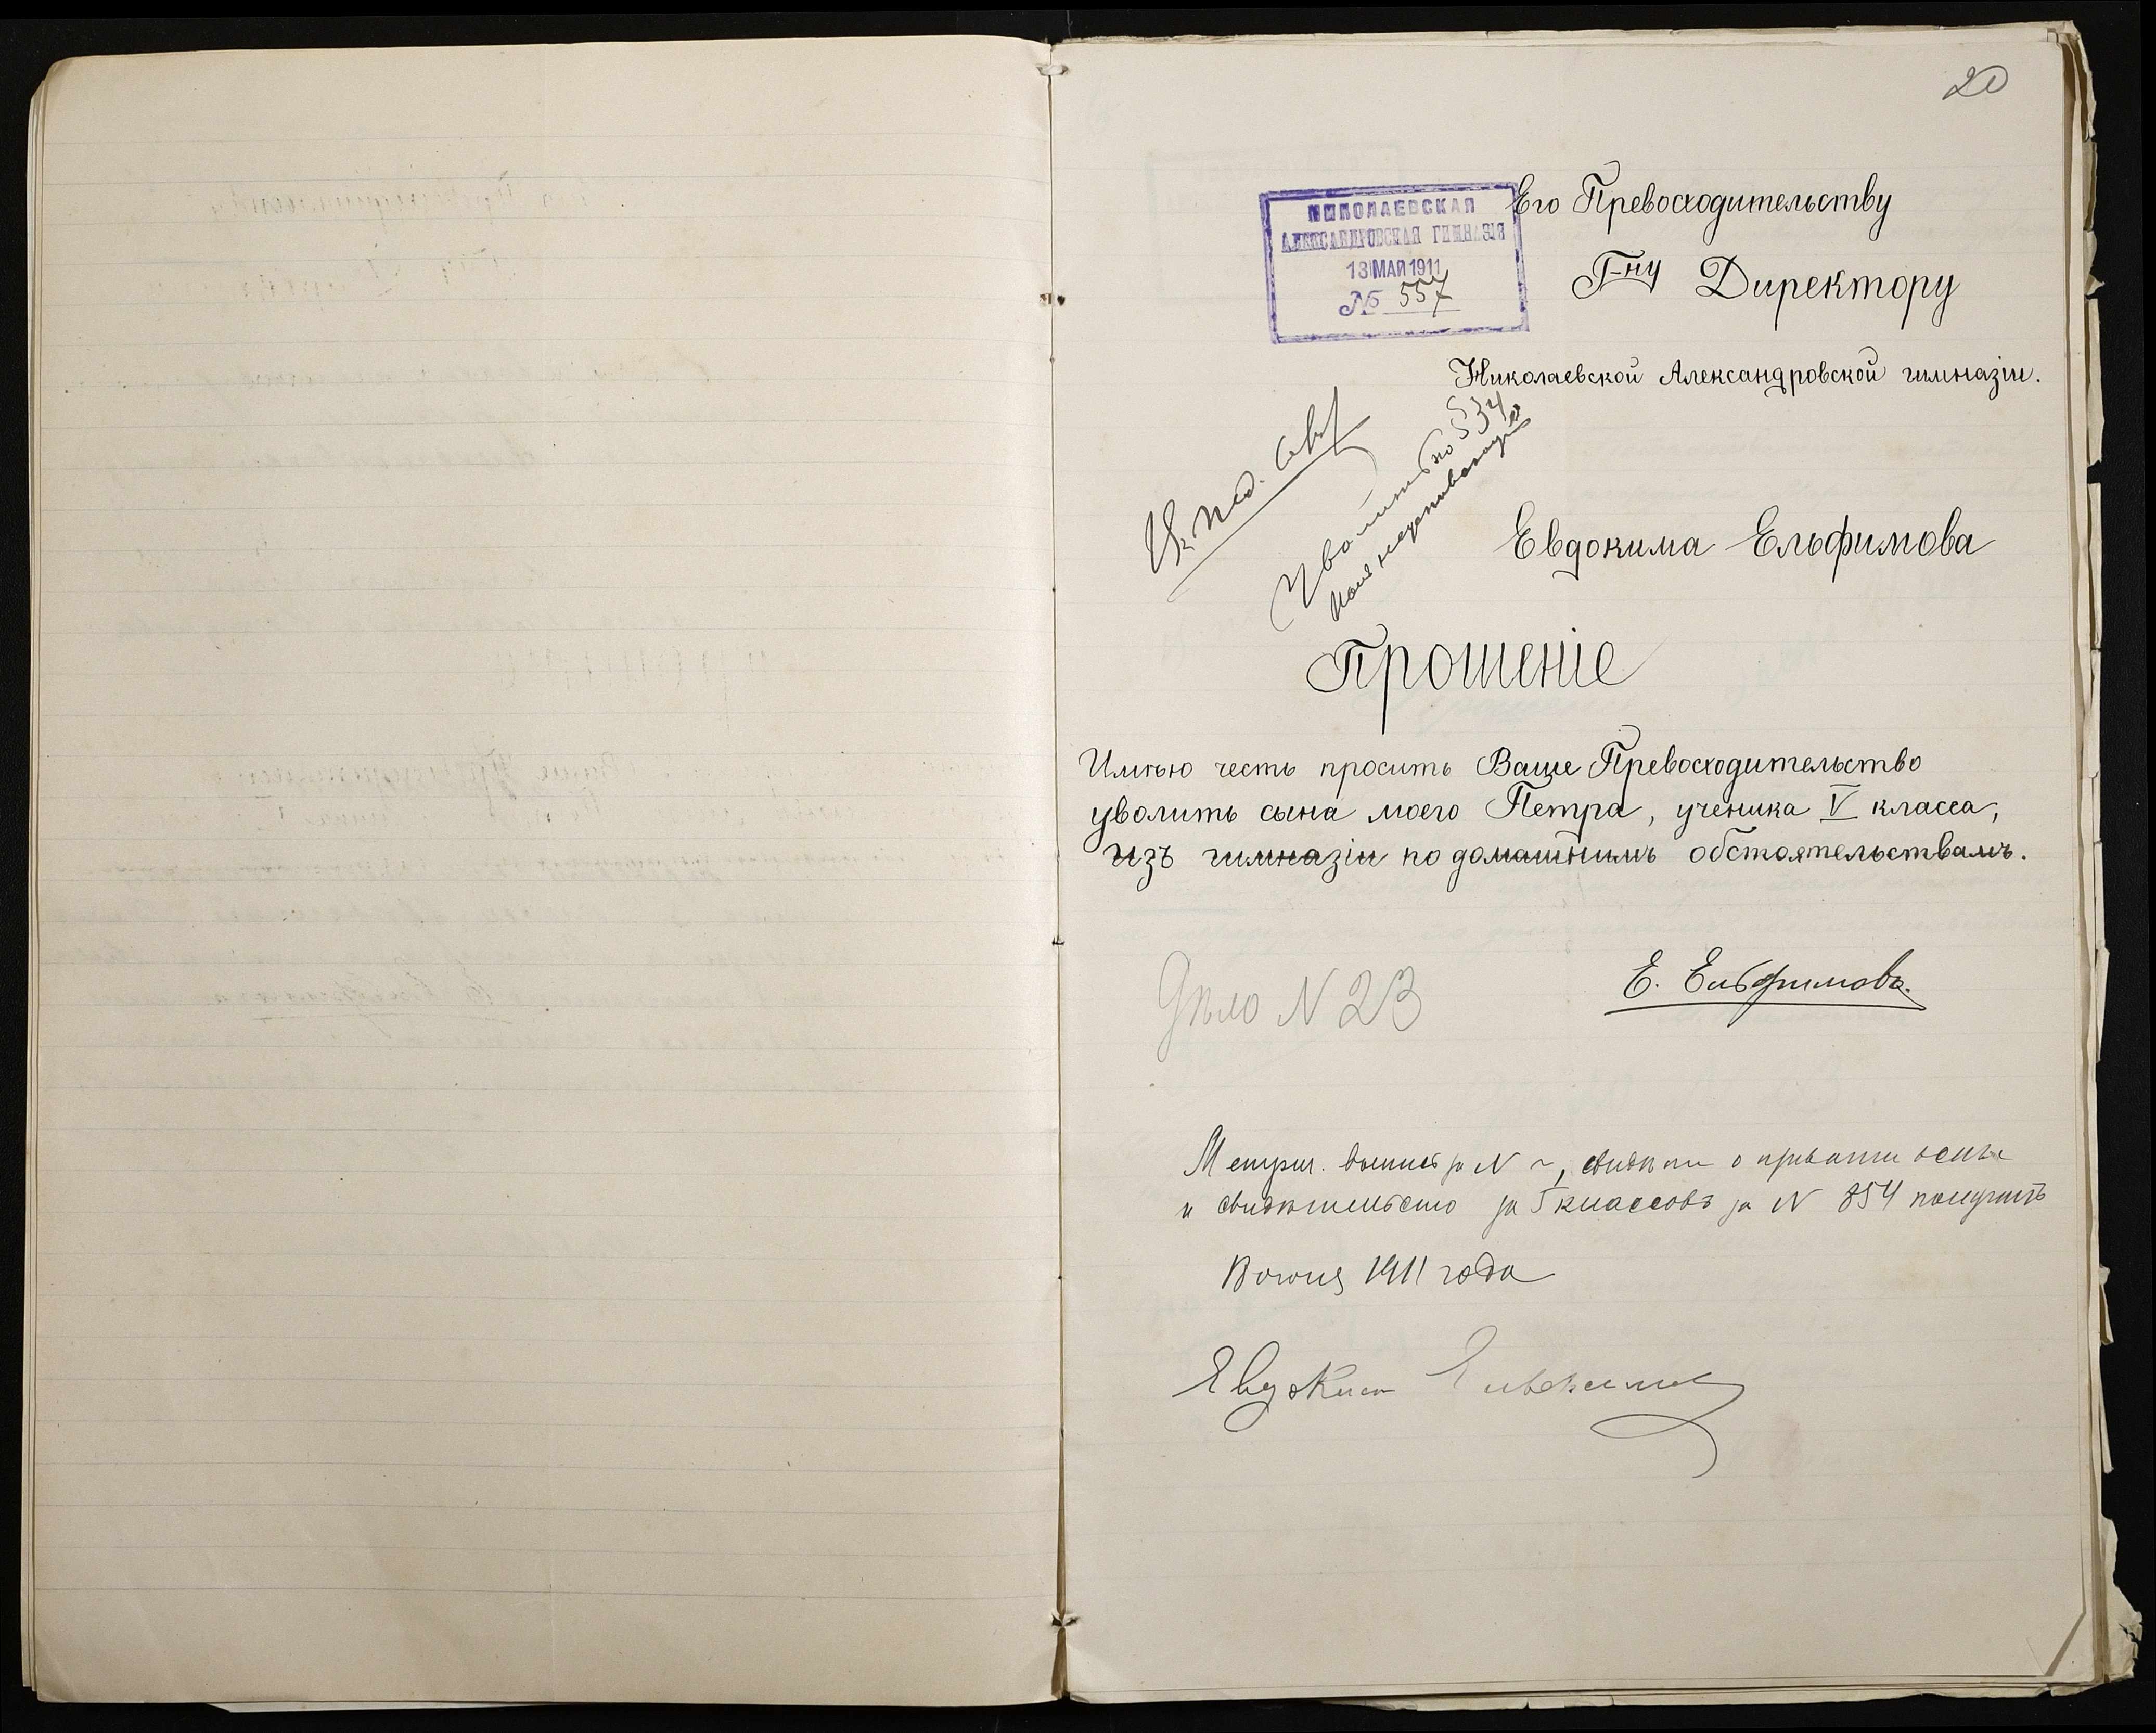 20
НИКОЛАЕВСКАЯ
АЛЕКСАНДРОВСКАЯ ГИМНАЗІЯ
13 МАЯ 1911
№ 557
Его Превосходительству
Г-ну Директору
Николаевской Александровской гимназіи.
Уволить по § 34
Евдокима Ельфимова
Прошеніе
Имѣю честь просить Ваше Превосходительство
уволить сына моего Петра, ученика V класса,
изъ гимназіи по домашнимъ обстоятельствамъ.
Е. Ельфимовъ.
Дѣло N 23
Метрич. за N о
и свидѣтельство за 5 классовъ за N 854 получилъ
1911 года
Евдоким Ельфимов